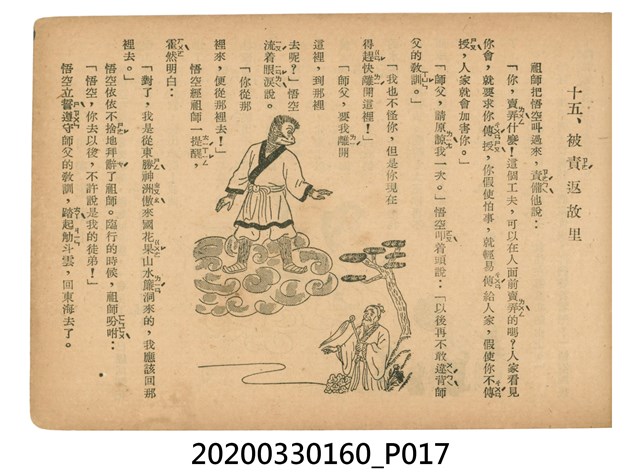 十五、被責返故里
祖師把悟空叫過來，責備他說：
「你，賣弄什麼！這個工夫，可以在人面前賣弄的嗎？人家看見
你會，就要求你傳授，你假使怕事，就輕易傳給人家，假使你不傳
授，人家就會加害你。」
「師父，請原諒我一次。」悟空叩着頭說：「以後再不敢違背師
父的教訓。」
「我也不怪你，但是你現在
得趕快離開這裡！」
「師父，要我離開
這裡，到那裡
去呢？」悟空
流着眼淚說。
「你從那
裡來，便從那裡去！」
悟空經祖師一提醒，
霍然明白：
「對了，我是從東勝神洲傲來國花果山水簾洞來的，我應該回那
裡去。」
悟空依依不捨地拜辭了祖師。臨行的時候，祖師吩咐：
「悟空，你去以後，不許說是我的徒弟！」
悟空立誓遵守師父的教訓，踏起觔斗雲，回東海去了。
20200330160_P017